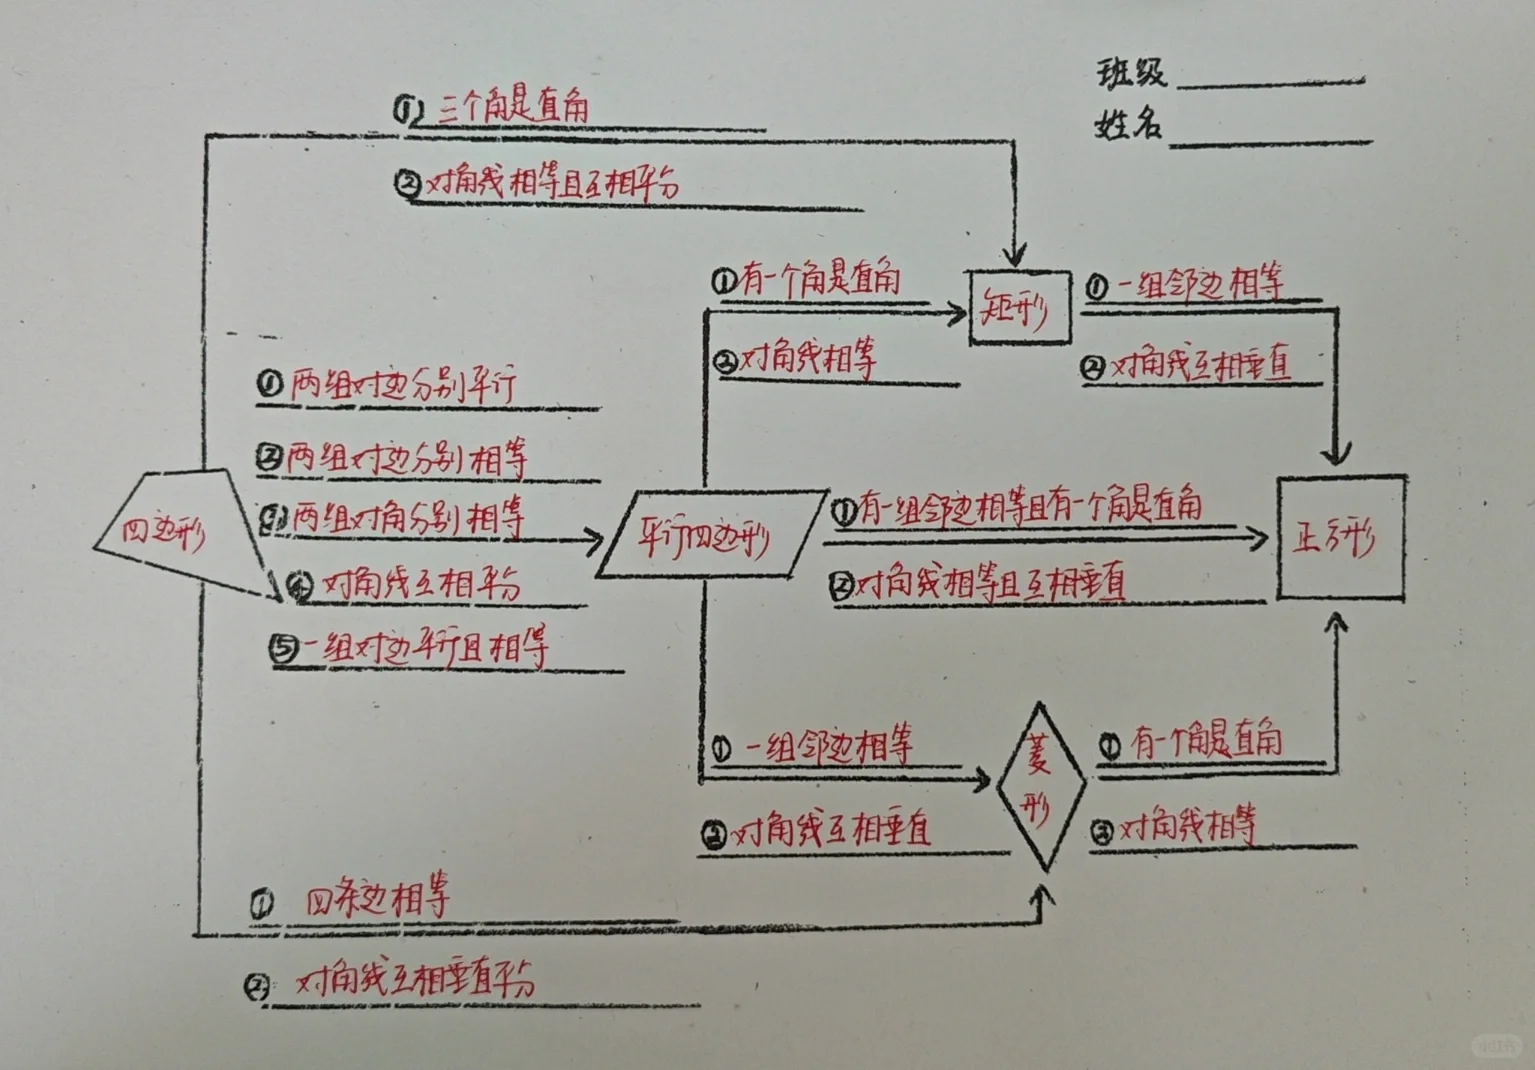 班级
姓名
① 三个角是直角
② 对角线相等且互相平分
① 有一个角是直角
② 对角线相等
矩形
① 一组邻边相等
② 对角线互相垂直
① 两组对边分别平行
② 两组对边分别相等
③ 两组对角分别相等
④ 对角线互相平分
⑤ 一组对边平行且相等
四边形
平行四边形
① 有一组邻边相等且有一个角是直角
② 对角线相等且互相垂直
正方形
① 一组邻边相等
② 对角线互相垂直
菱形
① 有一个角是直角
② 对角线相等
① 四条边相等
② 对角线互相垂直平分
小红书